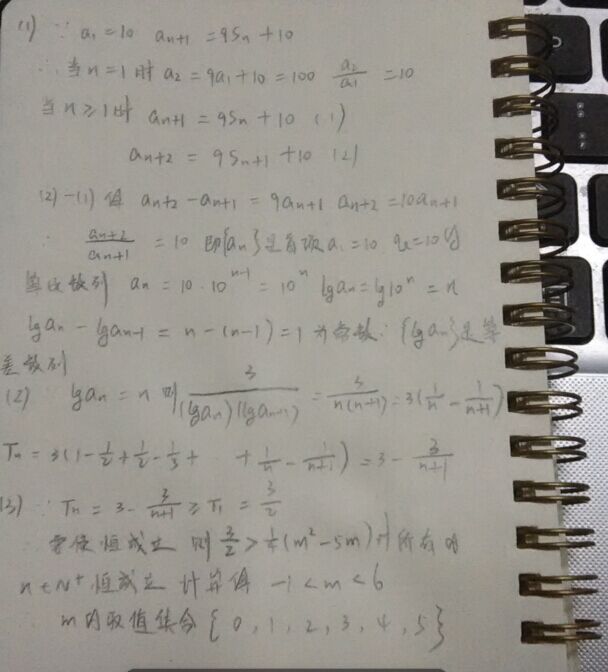 (1) ∵ a₁=10 aₙ₊₁ =9Sₙ+10
∴ 当n=1时 a₂=9a₁+10=100 a₂/a₁ =10
当n≥1时 aₙ₊₁=9Sₙ+10 (1)
aₙ₊₂ = 9Sₙ₊₁+10 (2)
(2)-(1)得 aₙ₊₂-aₙ₊₁=9aₙ₊₁ aₙ₊₂=10aₙ₊₁
∴ aₙ₊₂/aₙ₊₁ =10 即{aₙ}是首项a₁=10 q=10的
等比数列 aₙ=10·10ⁿ⁻¹=10ⁿ lgaₙ=lg10ⁿ=n
lgaₙ-lgaₙ₋₁=n-(n-1)=1为常数∴{lgaₙ}是等
差数列
(2) lgaₙ=n 则 3/(lgaₙ)(lgaₙ₊₁) = 3/n(n+1) = 3(1/n - 1/n+1)
Tₙ=3(1-1/2+1/2-1/3+ ·· +1/n-1/n+1)=3-3/n+1
(3) ∵ Tₙ=3-3/n+1≥T₁=3/2
要使恒成立 则 3/2>1/4(m²-5m)对所有的
n∈N⁺恒成立 计算得 -1<m<6
m的取值集合{0,1,2,3,4,5}